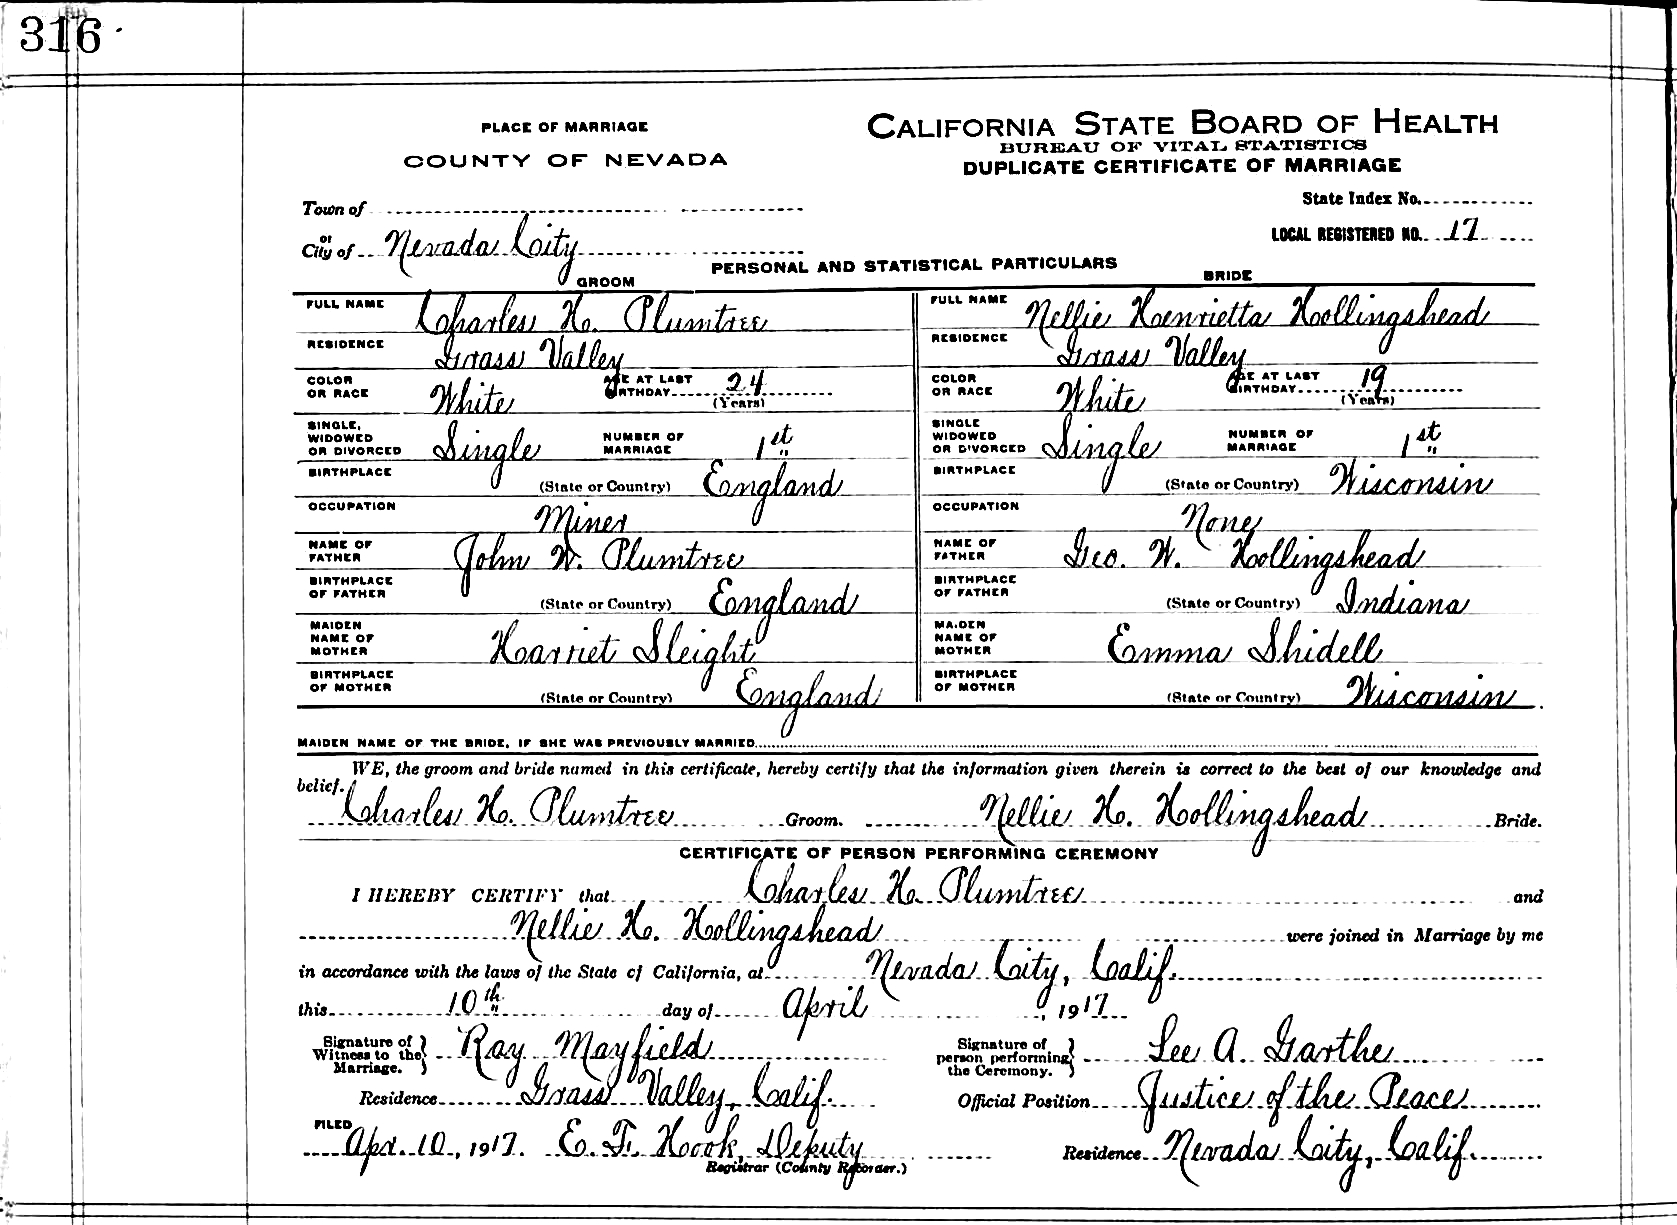 316
PLACE OF MARRIAGE
COUNTY OF NEVADA
CALIFORNIA STATE BOARD OF HEALTH
BUREAU OF VITAL STATISTICS
DUPLICATE CERTIFICATE OF MARRIAGE
Town of
or
City of Nevada City
State Index No.
LOCAL REGISTERED NO. 17
PERSONAL AND STATISTICAL PARTICULARS
GROOM BRIDE
FULL NAME Charles H. Plumtree FULL NAME Nellie Henrietta Hollingshead
RESIDENCE Grass Valley RESIDENCE Grass Valley
COLOR OR RACE White AGE AT LAST BIRTHDAY 24 (Years) COLOR OR RACE White AGE AT LAST BIRTHDAY 19 (Years)
SINGLE, WIDOWED OR DIVORCED Single NUMBER OF MARRIAGE 1st SINGLE WIDOWED OR DIVORCED Single NUMBER OF MARRIAGE 1st
BIRTHPLACE (State or Country) England BIRTHPLACE (State or Country) Wisconsin
OCCUPATION Miner OCCUPATION None
NAME OF FATHER John W. Plumtree NAME OF FATHER Geo. W. Hollingshead
BIRTHPLACE OF FATHER (State or Country) England BIRTHPLACE OF FATHER (State or Country) Indiana
MAIDEN NAME OF MOTHER Harriet Sleight MAIDEN NAME OF MOTHER Emma Shidell
BIRTHPLACE OF MOTHER (State or Country) England BIRTHPLACE OF MOTHER (State or Country) Wisconsin
MAIDEN NAME OF THE BRIDE, IF SHE WAS PREVIOUSLY MARRIED
WE, the groom and bride named in this certificate, hereby certify that the information given therein is correct to the best of our knowledge and
belief.
Charles H. Plumtree Groom. Nellie H. Hollingshead Bride.
CERTIFICATE OF PERSON PERFORMING CEREMONY
I HEREBY CERTIFY that Charles H. Plumtree and
Nellie H. Hollingshead were joined in Marriage by me
in accordance with the laws of the State of California, at Nevada City, Calif.
this 10th day of April, 1917
Signature of Witness to the Marriage. Ray Mayfield Signature of person performing the Ceremony. Lee A. Garthe
Residence Grass Valley, Calif. Official Position Justice of the Peace
FILED
Apr. 10, 1917. E. F. Hook, Deputy Residence Nevada City, Calif.
Registrar (County Recorder.)